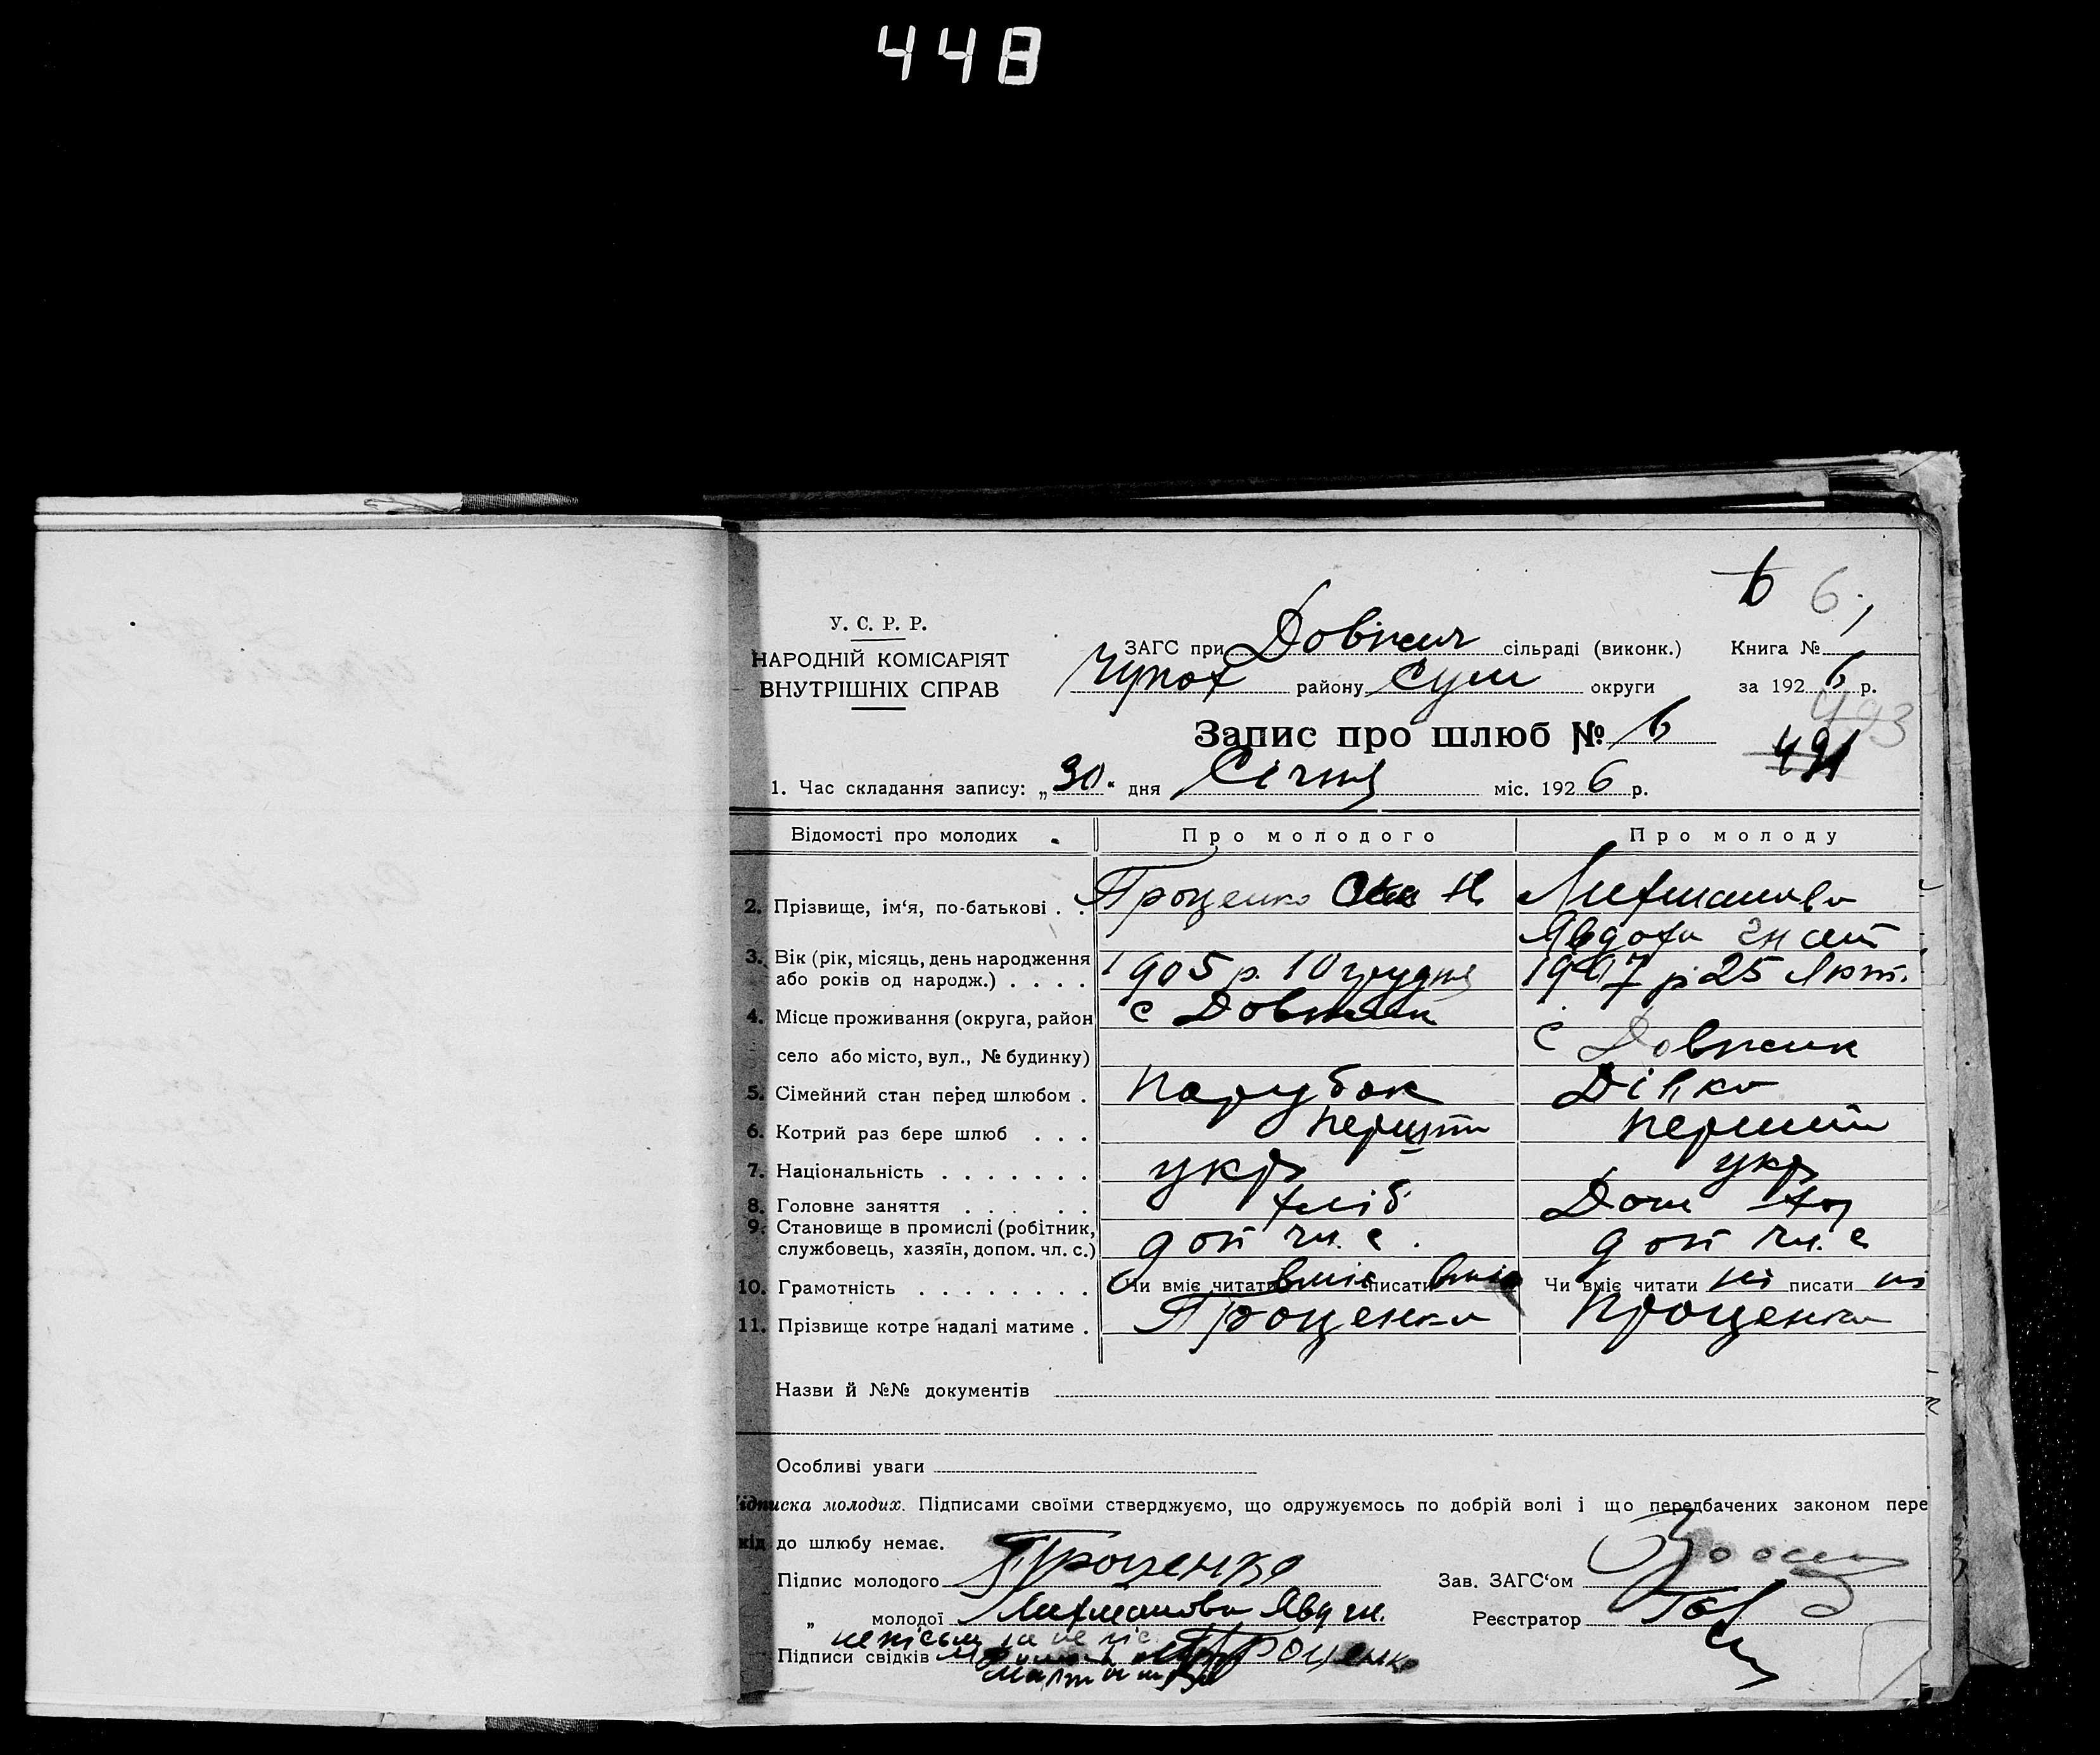 448
6 6.
У. С. Р. Р.
НАРОДНІЙ КОМІСАРІЯТ
ВНУТРІШНІХ СПРАВ
ЗАГС при Довжич сільраді (виконк.) Книга №
Чупах району Сум округи за 192 6 р.
493
Запис про шлюб № 6
491
1. Час складання запису: „30" дня Січня міс. 192 6 р.
Відомості про молодих Про молодого Про молоду
2. Прізвище, ім'я, по-батькові . . Проценко Н.
Явдоха Гнат
3. Вік (рік, місяць, день народження 1905 р. 10 грудня 1907 р 25 Лют.
або років од народж.) . . . .
4. Місце проживання (округа, район с Довжик
село або місто, вул., № будинку) с Довжик
5. Сімейний стан перед шлюбом . Парубок Дівка
6. Котрий раз бере шлюб . . . перший перший
7. Національність . . . . . . . укр укр
8. Головне заняття . . . . . хліб Дом хоз
9. Становище в промислі (робітник, доп чл. с. доп чл. с
службовець, хазяїн, допом. чл. с.)
10. Грамотність . . . . . . . . Чи вміє читати вміє писати вміє Чи вміє читати ні писати ні
11. Прізвище котре надалі матиме . Проценко Проценко
Назви й №№ документів
Особливі уваги
ідписка молодих. Підписами своїми стверджуємо, що одружуємось по добрій волі і що передбачених законом пере
кід до шлюбу немає.
Підпис молодого Проценко Зав. ЗАГС'ом
„ молодої Явд Гн. Реєстратор
Підписи свідків Проценко